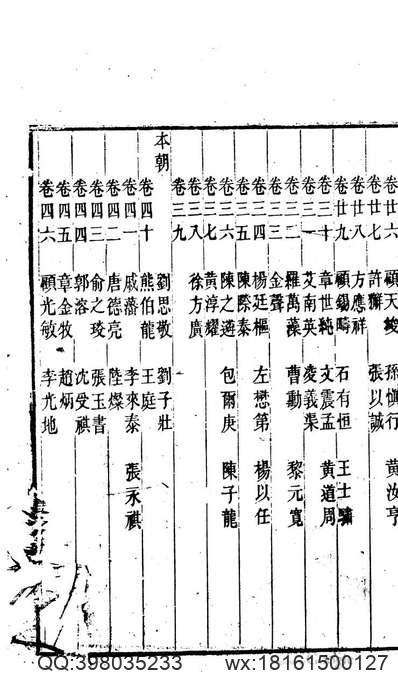 卷廿六 顧天埈 孫慎行 黃汝亨
卷廿七 許獬 張以誠
卷廿八 方應祥
卷廿九 顧錫疇 石有恒 王士驌
卷三十 章世純 文震孟 黃道周
卷三一 艾南英 凌義渠
卷三二 羅萬藻 曹勳 黎元寬
卷三三 金聲
卷三四 楊廷樞 左懋第 楊以任
卷三五 陳際泰
卷三六 陳之遴 包爾庚 陳子龍
卷三七 黃淳耀
卷三八 徐方廣
卷三九
本朝 劉思敬 劉子壯
卷四十 熊伯龍 王庭
卷四一 戚藩 李來泰 張永祺
卷四二 唐德亮 陸燦
卷四三 俞之琰 張玉書
卷四四 郭溶 沈受祺
卷四五 章金牧 趙炳
卷四六 顧光敏 李光地
QQ:398035233 wx:18161500127